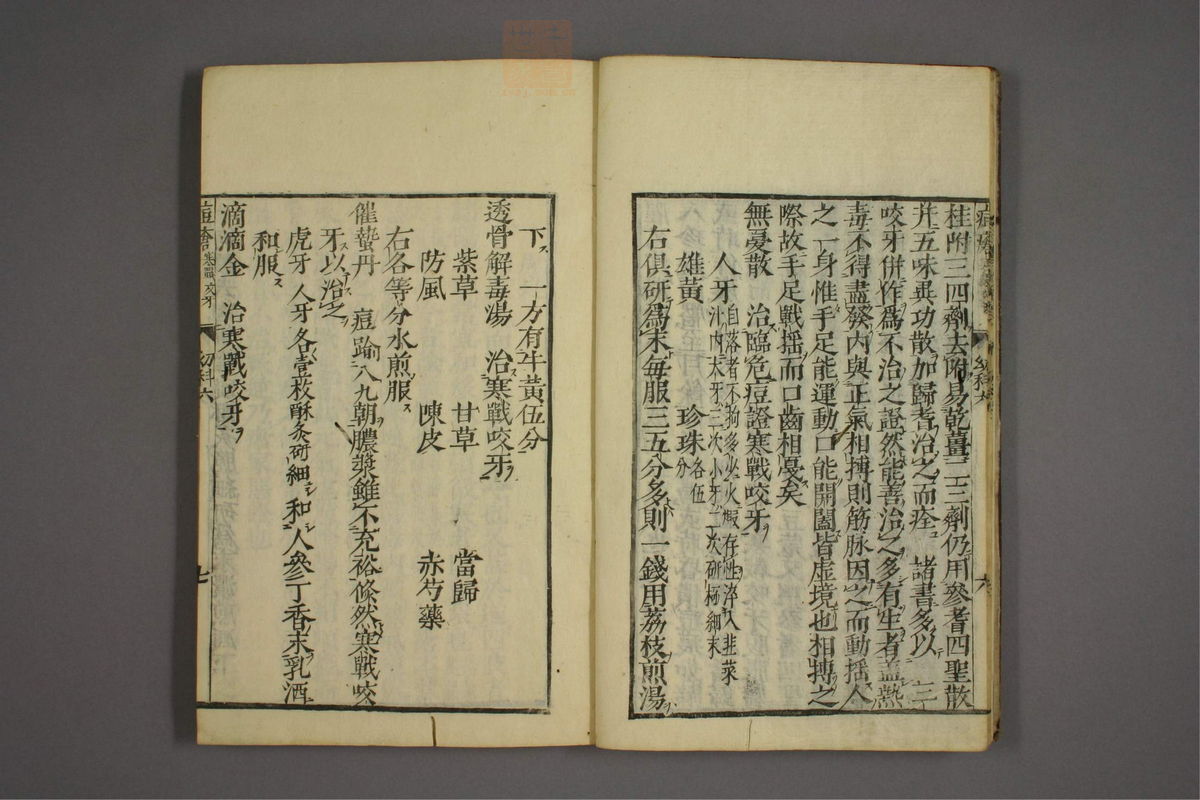 桂附三四劑去附易乾薑二三劑仍用參耆四聖散
并五味異功散加歸耆治之而痊 諸書多以
咬牙併作爲不治之證然能善治之多有生者蓋熱
毒不得盡發内與正氣相搏則筋脉因之而動揺人
之一身惟手足能運動口能開闔皆虚境也相搏之
際故手足戰揺而口齒相憂矣
無憂散 治臨危痘證寒戰咬牙
人牙 自落者不拘多少火煅存性淬入韭菜
汁内末牙三次小牙二次研極細末
雄黃 珍珠 各伍分
右俱研爲末每服三五分多則一錢用荔枝煎湯
下 一方有牛黃伍分
透骨解毒湯 治寒戰咬牙
紫草 甘草 當歸
防風 陳皮 赤芍藥
右各等分水煎服
催蟄丹 痘踰八九朝膿漿雖不充裕倏然寒戰咬
牙以治之
虎牙 人牙各壹枚酥灸研細 和人參丁香末乳酒
和服
滴滴金 治寒戰咬牙
痘瘡 寒戰咬牙 幼科六 七